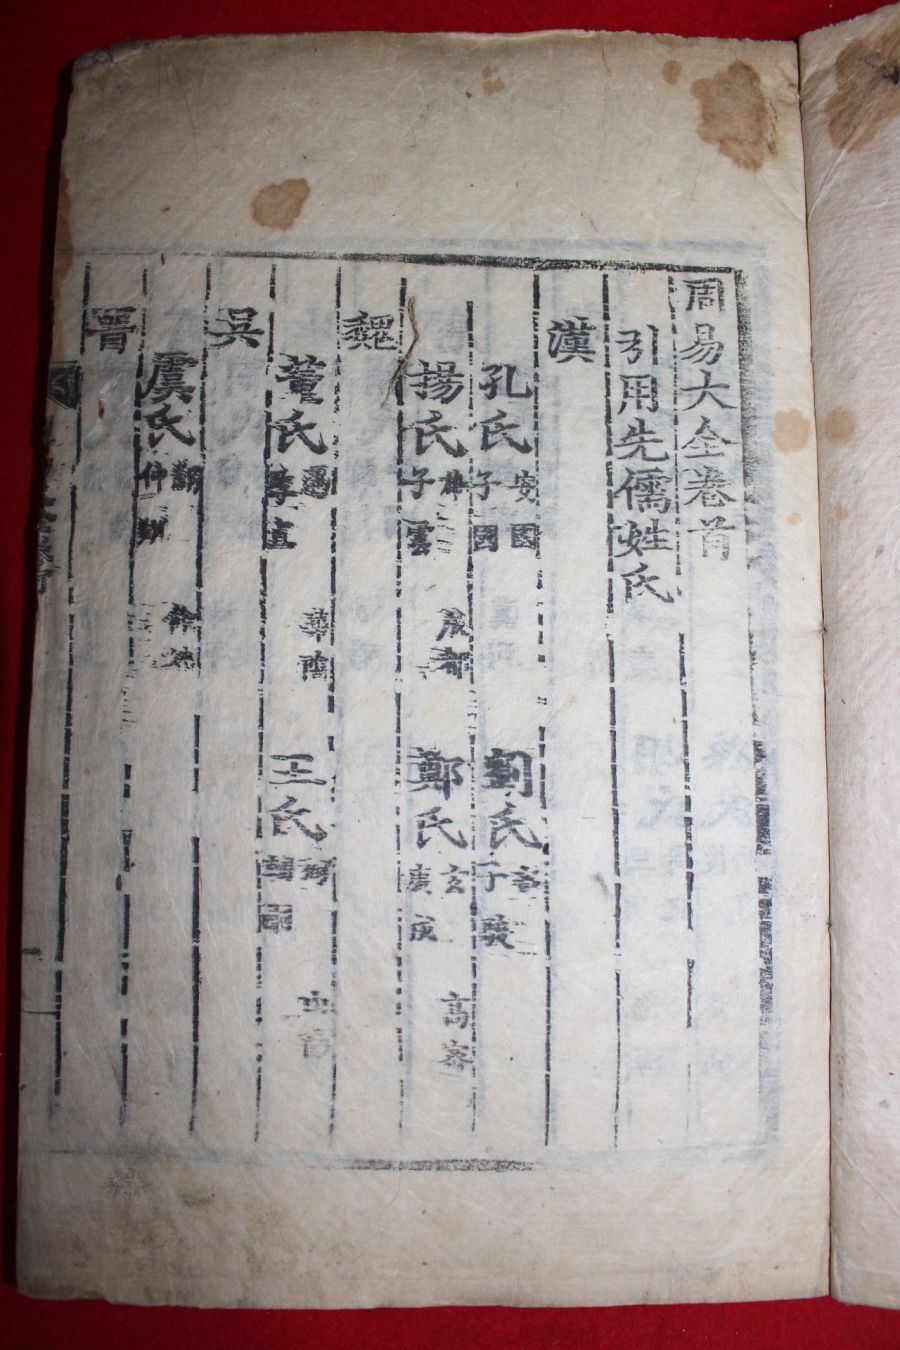 周易大全卷首
引用先儒姓氏
漢
孔氏 安國 子國 劉氏 子
揚氏 雄 子雲 成都 鄭氏 玄 康成 高密
魏
董氏 遇 季直 華陰 王氏 弼 輔嗣 山
吳
虞氏 翻 仲翔 餘姚
晉